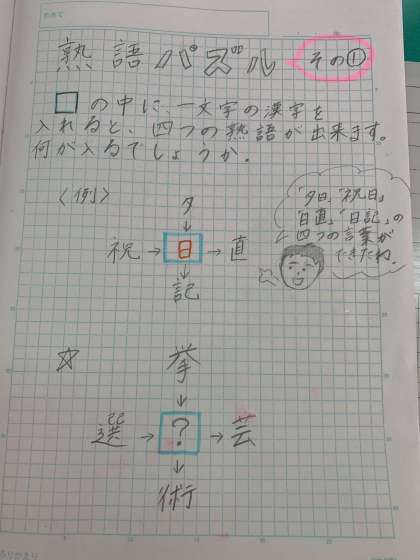 熟語パズル その①
□の中に、一文字の漢字を
入れると、四つの熟語が出来ます。
何が入るでしょうか。
〈例〉
夕
↓
祝→日→直
↓
記
「夕日」「祝日」
「日直」「日記」の
四つの言葉が
できたね。
☆
挙
↓
選→?→芸
↓
術